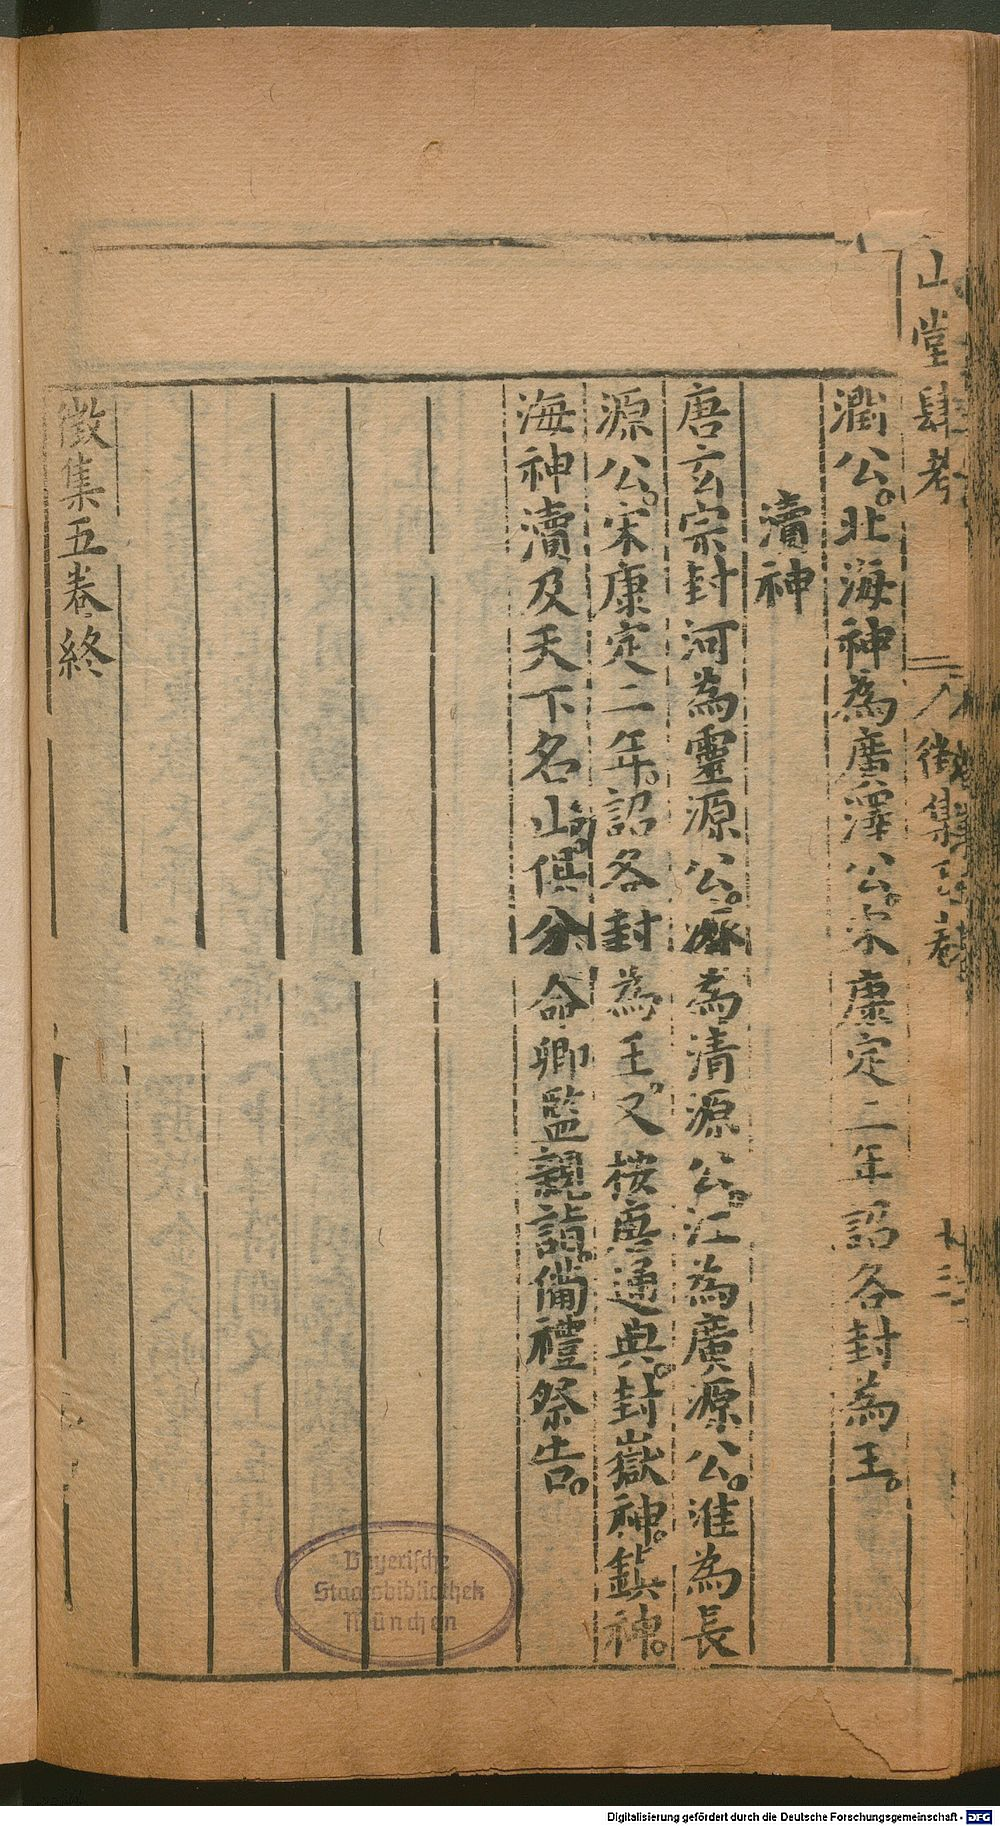 山堂肆考 徵集五卷
潤公。北海神為廣澤公。宋康定二年詔各封為王。
瀆神
唐玄宗封河為靈源公。濟為清源公。江為廣源公。淮為長
源公。宋康定二年。詔各封為王。又按唐通典。封嶽神。鎮神。
海神瀆及天下名山俱分命卿監親詣。備禮祭告。
徵集五卷終
Bayerische
Staatsbibliothek
München
Digitalisierung gefördert durch die Deutsche Forschungsgemeinschaft - DFG